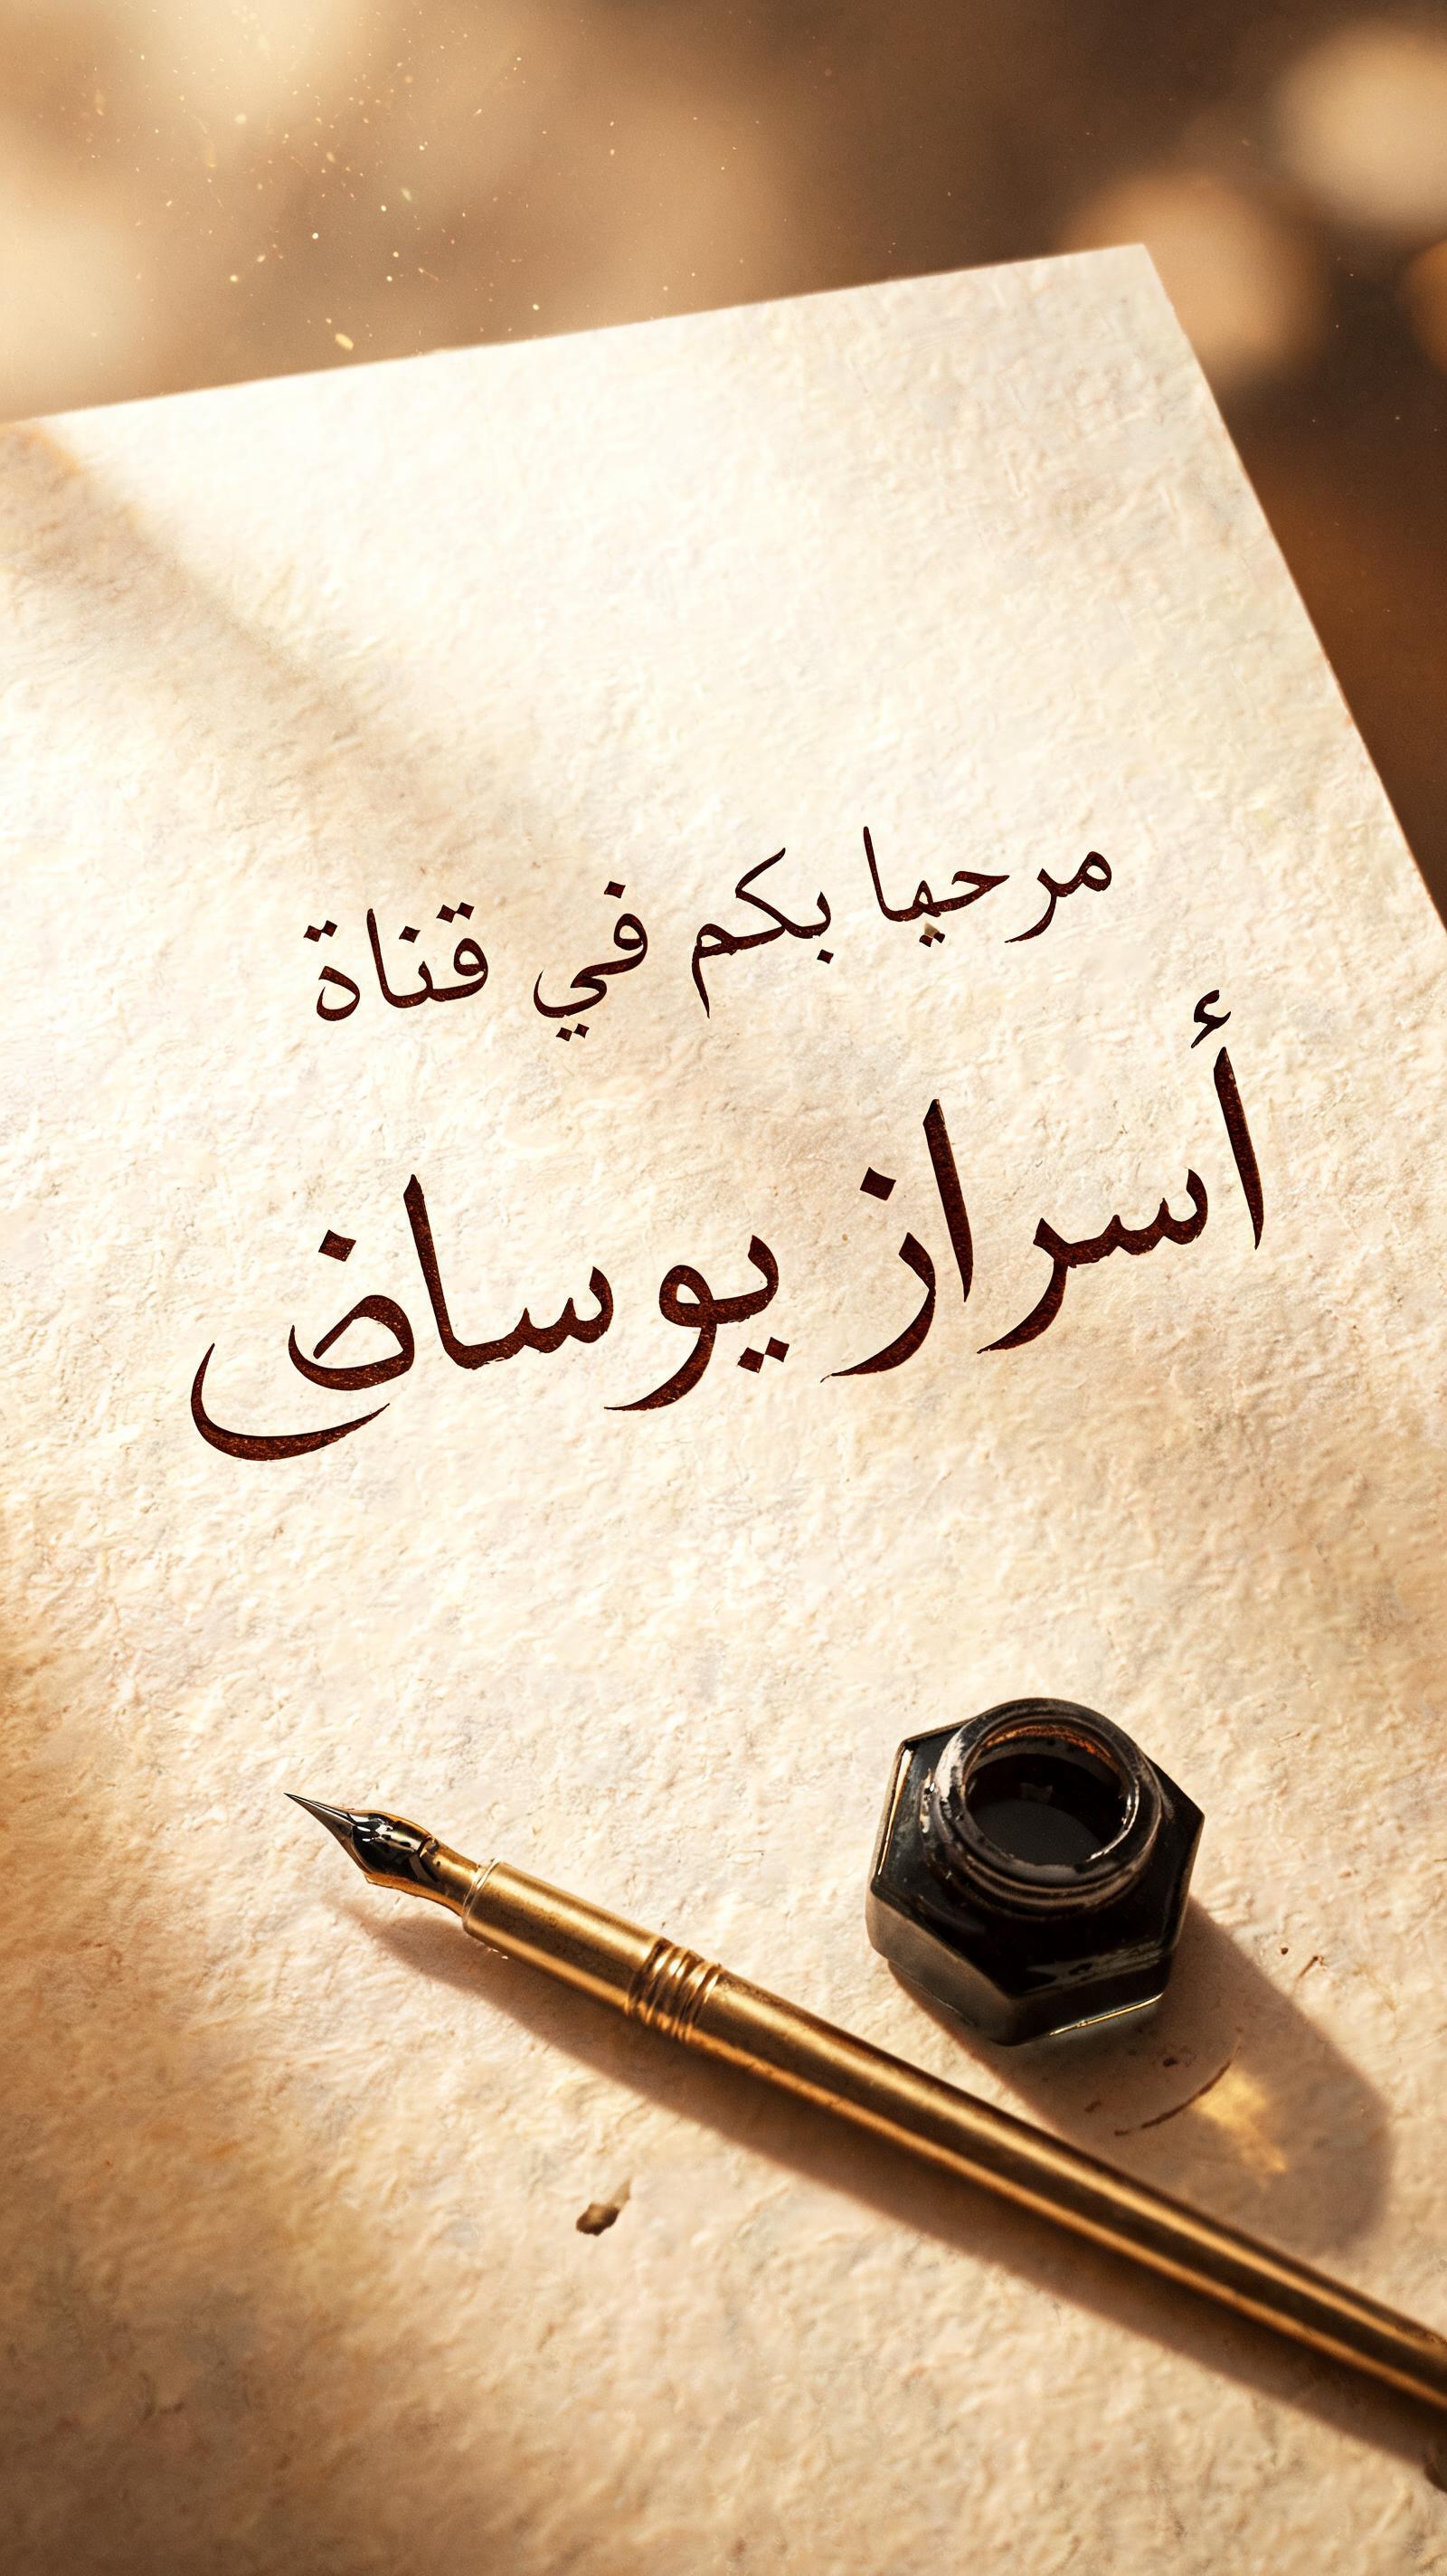 مرحبا بكم في قناة
أسراز يوساض